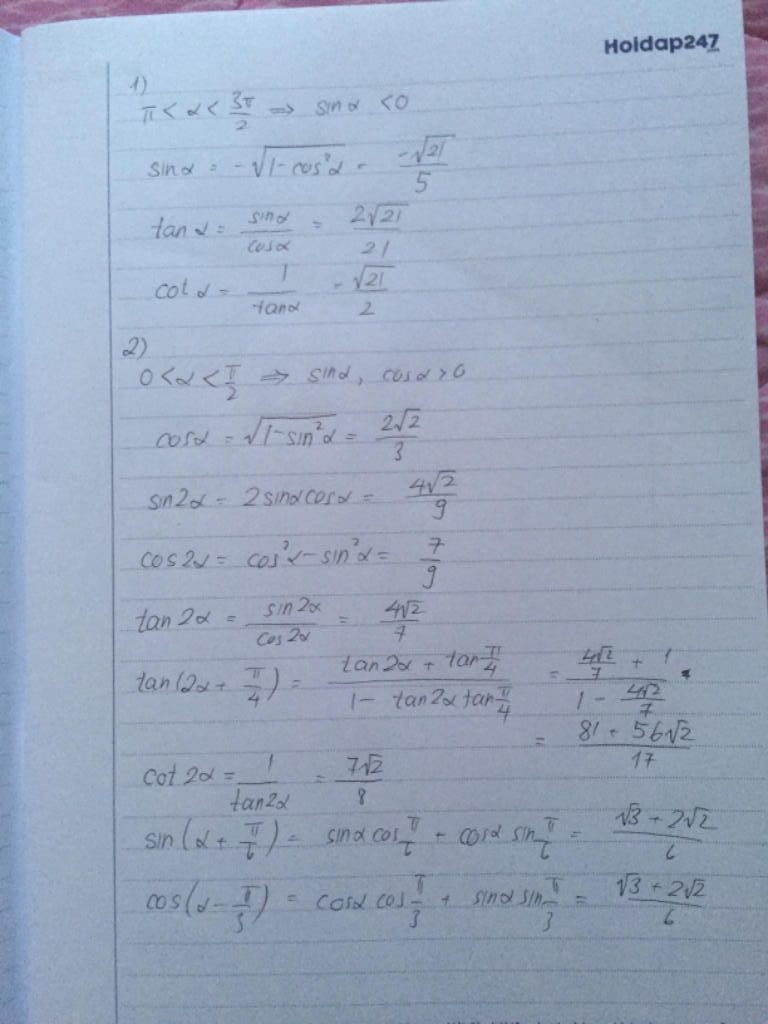 Hoidap247
1)
π < α < 3π/2 ⇒ sinα < 0
sinα = -√(1-cos²α) = -√21/5
tanα = sinα/cosα = 2√21/21
cotα = 1/tanα = √21/2
2)
0 < α < π/2 ⇒ sinα, cosα > 0
cosα = √(1-sin²α) = 2√2/3
sin2α = 2sinαcosα = 4√2/9
cos2α = cos²α - sin²α = 7/9
tan2α = sin2α/cos2α = 4√2/7
tan(2α + π/4) = (tan2α + tan π/4)/(1 - tan2α tan π/4) = (4√2/7 + 1)/(1 - 4√2/7)
= (81 + 56√2)/17
cot2α = 1/tan2α = 7√2/8
sin(α + π/6) = sinα cos π/6 + cosα sin π/6 = (√3 + 2√2)/6
cos(α - π/3) = cosα cos π/3 + sinα sin π/3 = (√3 + 2√2)/6